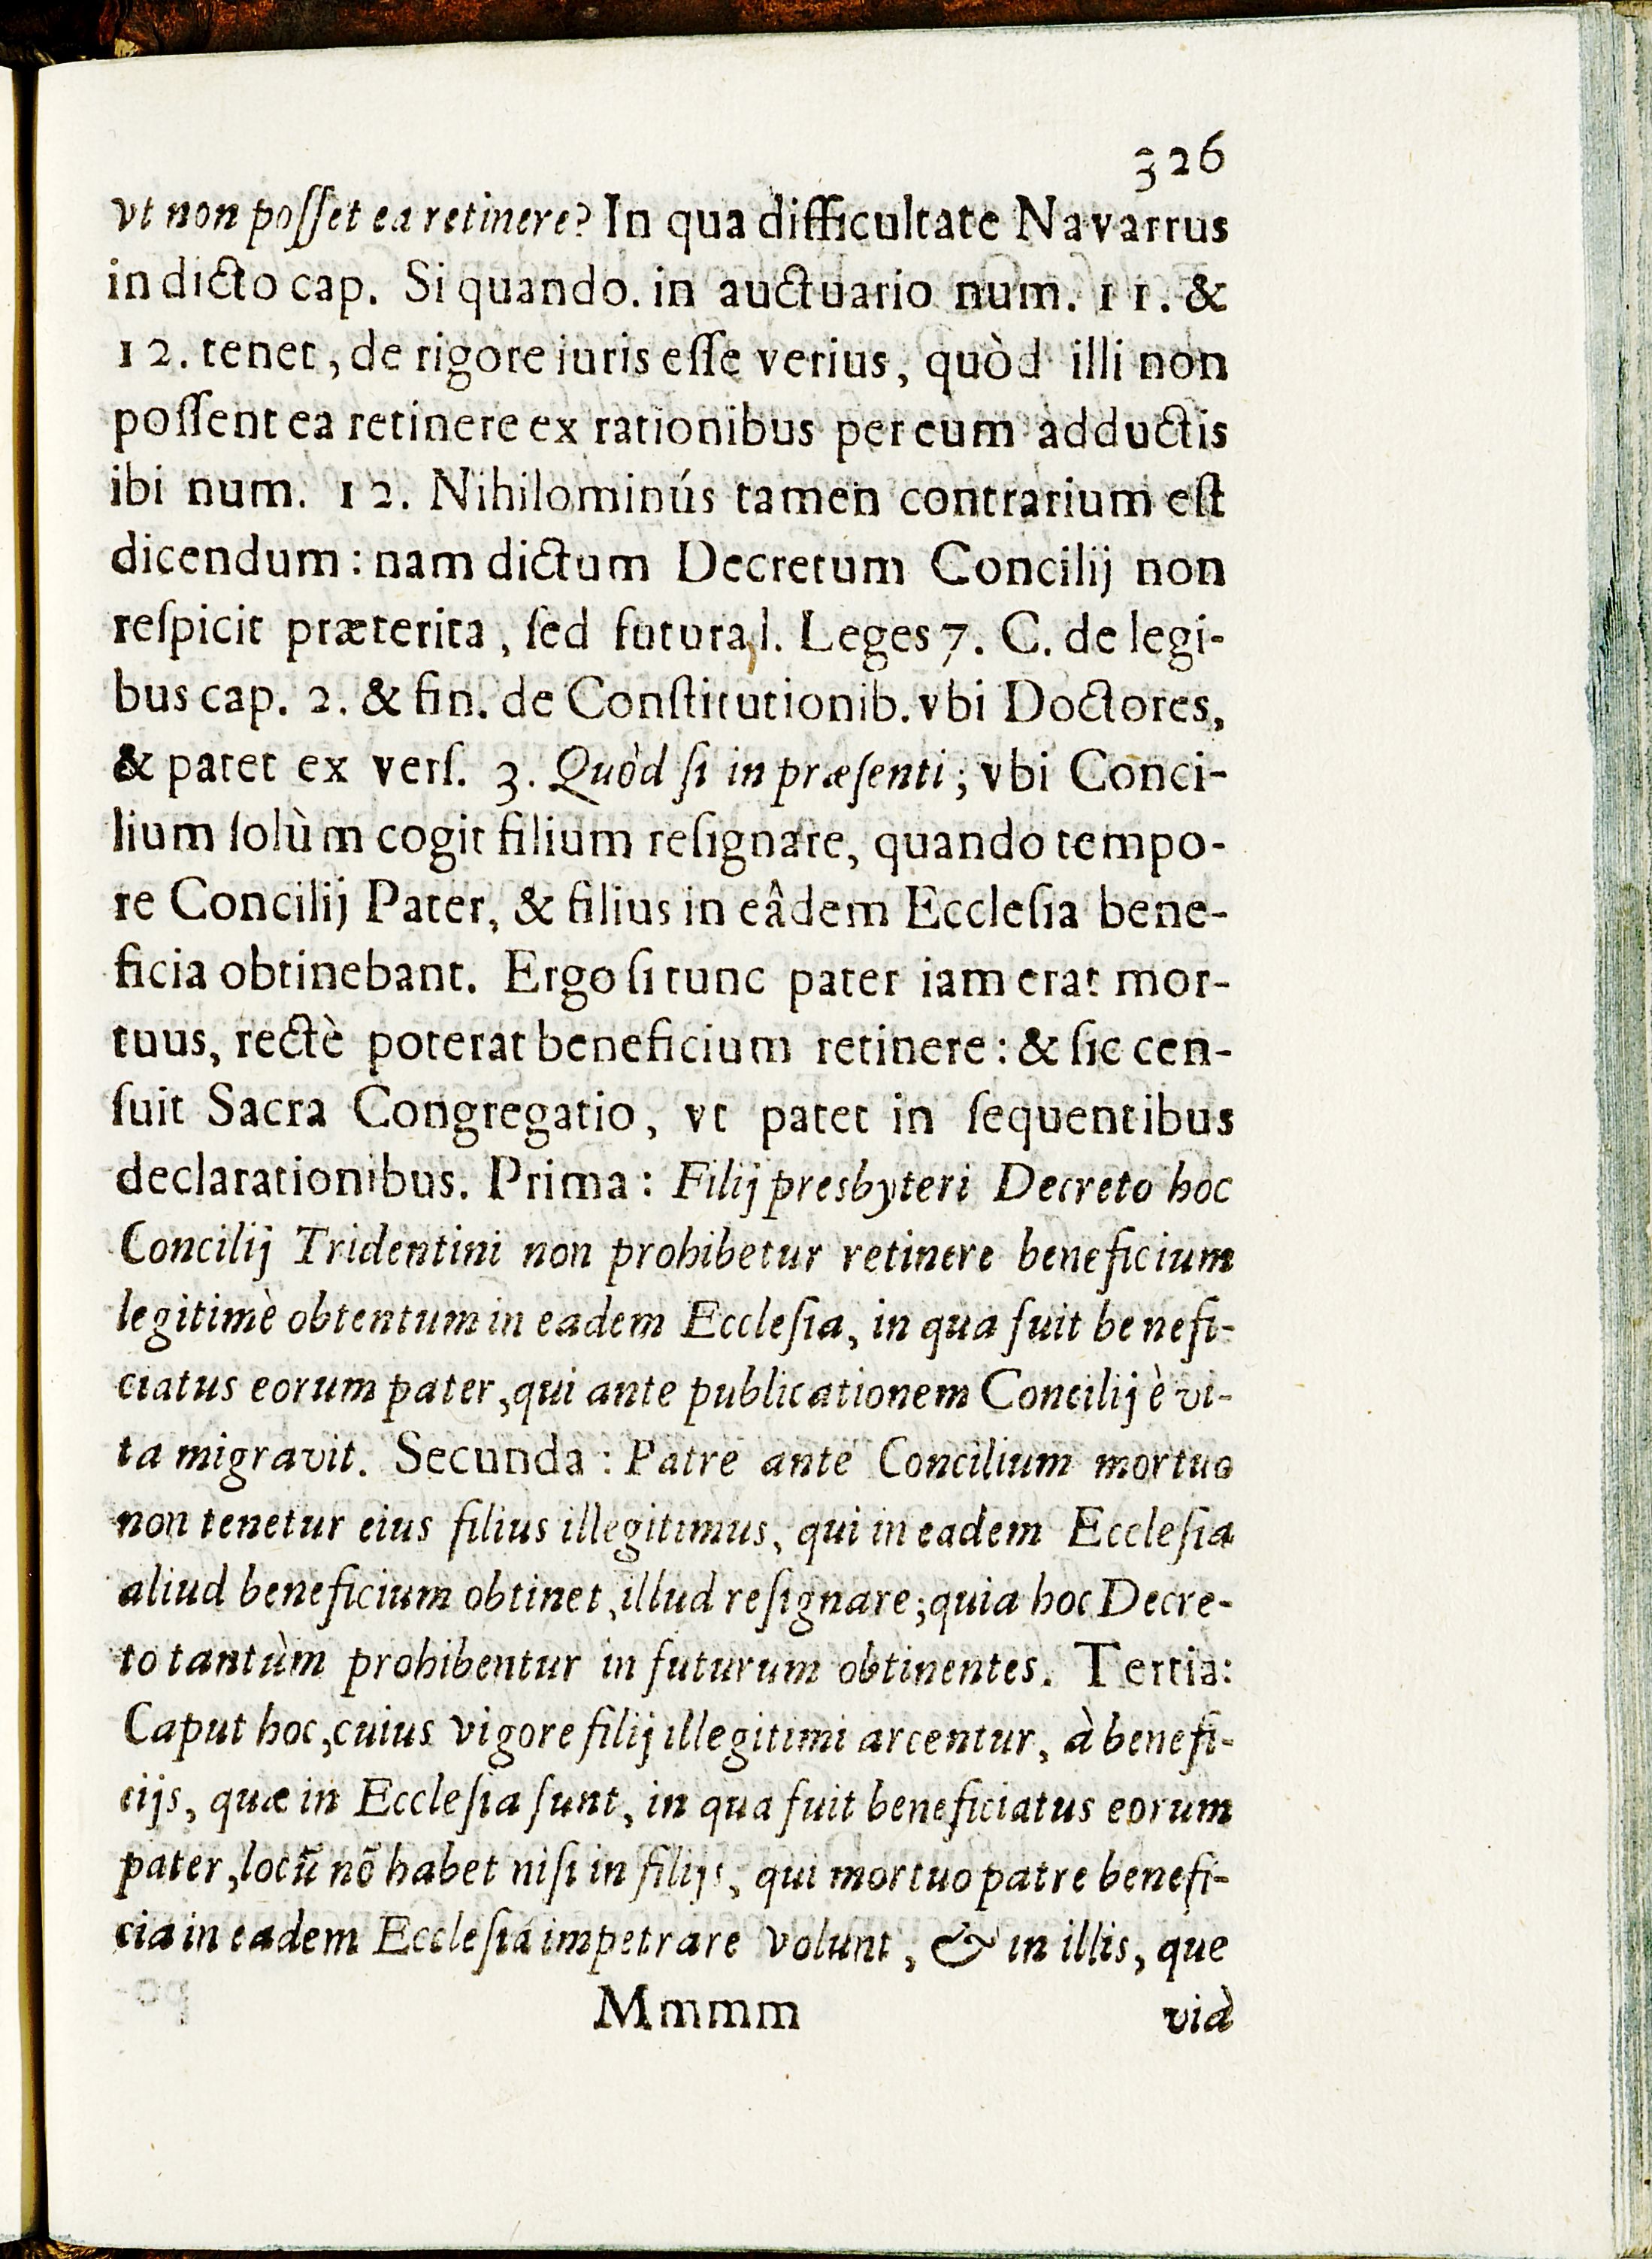 326
vt non poſſet ea retinere? In qua difficultate Navarrus
in dicto cap. Si quando. in auctuario num. 11. &
12. tenet, de rigore iuris eſſe verius, quòd illi non
poſſent ea retinere ex rationibus per eum adductis
ibi num. 12. Nihilominús tamen contrarium eſt
dicendum: nam dictum Decretum Concilij non
reſpicit præterita, ſed futura, l. Leges 7. C. de legi-
bus cap. 2. & fin. de Conſtitutionib. vbi Doctores,
& patet ex verſ. 3. Quòd ſi in præſenti; vbi Conci-
lium ſolùm cogit filium reſignare, quando tempo-
re Concilij Pater, & filius in eâdem Eccleſia bene-
ficia obtinebant. Ergo ſi tunc pater iam erat mor-
tuus, rectè poterat beneficium retinere: & ſic cen-
ſuit Sacra Congregatio, vt patet in ſequentibus
declarationibus. Prima: Filij presbyteri Decreto hoc
Concilij Tridentini non prohibetur retinere beneficium
legitimè obtentum in eadem Eccleſia, in qua fuit benefi-
ciatus eorum pater, qui ante publicationem Concilij è vi-
ta migravit. Secunda: Patre ante Concilium mortuo
non tenetur eius filius illegitimus, qui in eadem Eccleſia
aliud beneficium obtinet, illud reſignare; quia hoc Decre-
to tantùm prohibentur in futurum obtinentes. Tertia:
Caput hoc, cuius vigore filij illegitimi arcentur, à benefi-
cijs, quæ in Eccleſia ſunt, in qua fuit beneficiatus eorum
pater, locũ nõ habet niſi in filijs, qui mortuo patre benefi-
cia in eadem Eccleſia impetrare volunt, & in illis, que
Mmmm vià